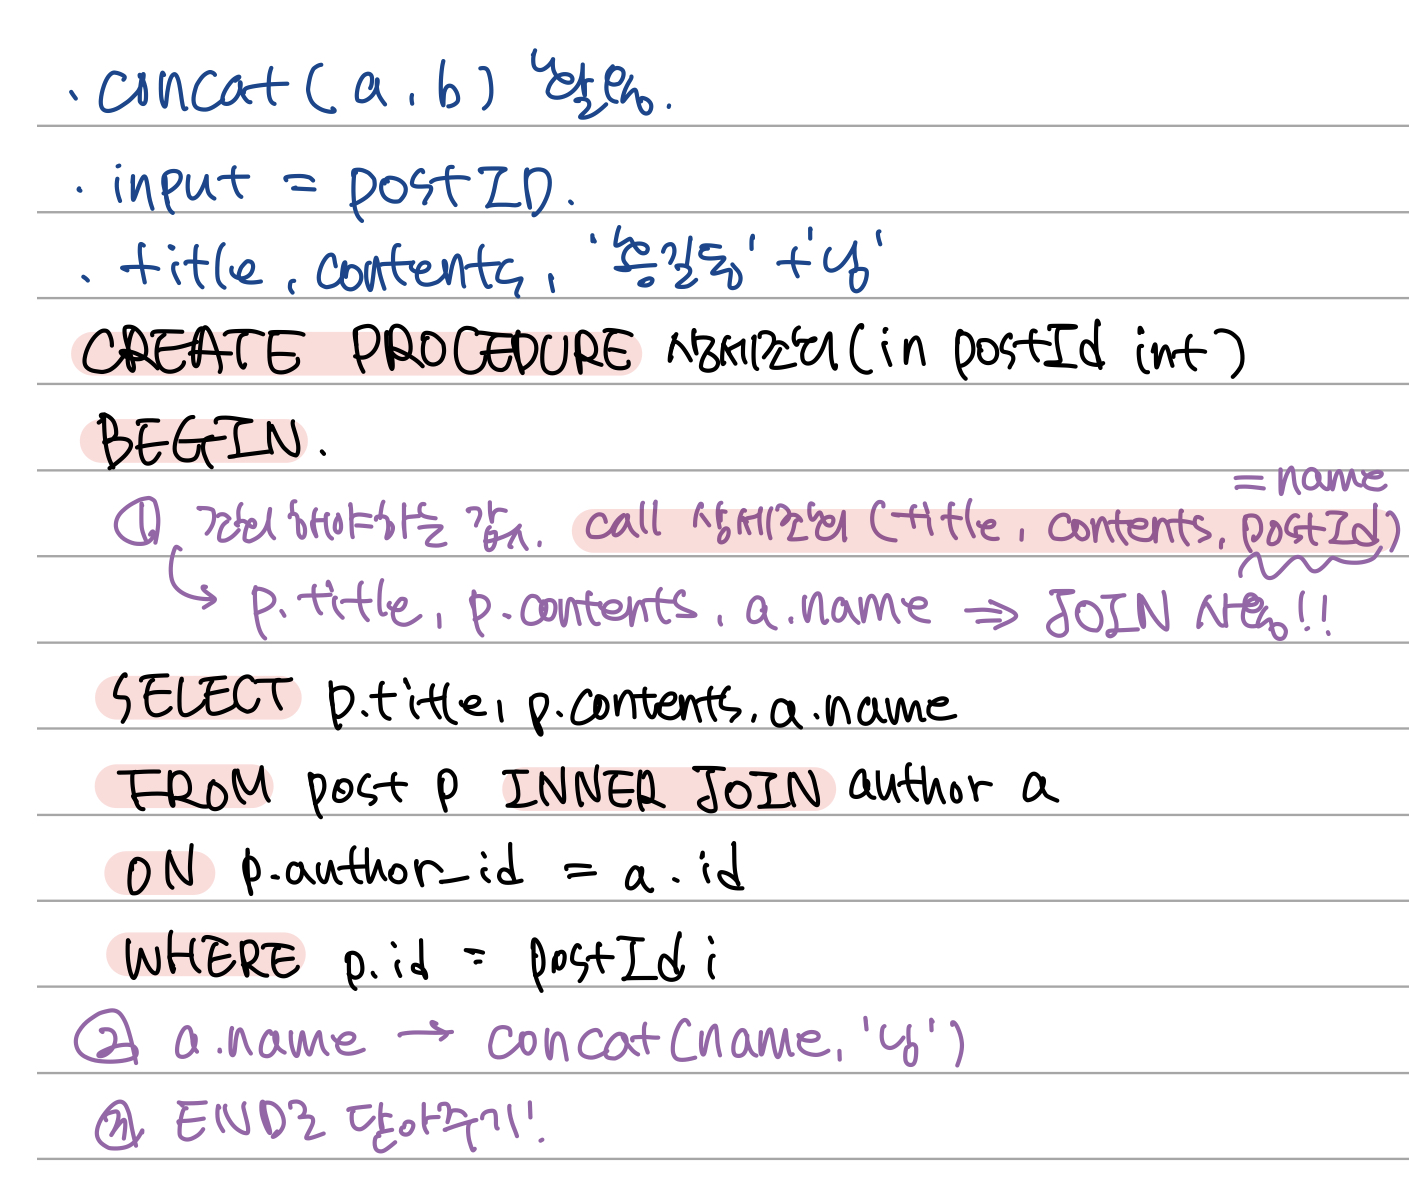 · concat(a, b) 활용.
· input = postID.
· title, contents, '홍길동' + '님'
CREATE PROCEDURE 상세조회(in postId int)
BEGIN.
= name
① 조회해야하는 값. call 상세조회 (title, contents, postId)
↳ p.title, p.contents, a.name ⇒ JOIN 사용!!
SELECT p.title, p.contents, a.name
FROM post p INNER JOIN author a
ON p.author_id = a.id
WHERE p.id = postId;
② a.name → concat(name, '님')
③ END로 닫아주기!